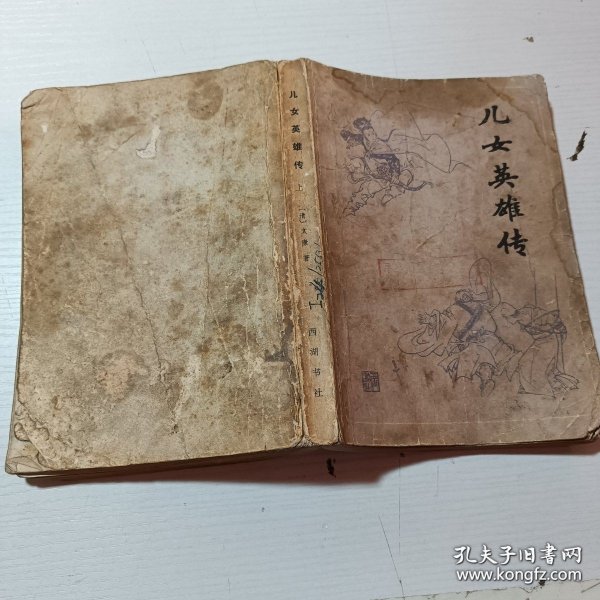 儿女英雄传
儿女英雄传 上 〔清〕文康 著
西湖书社
孔夫子旧书网
www.kongfz.com